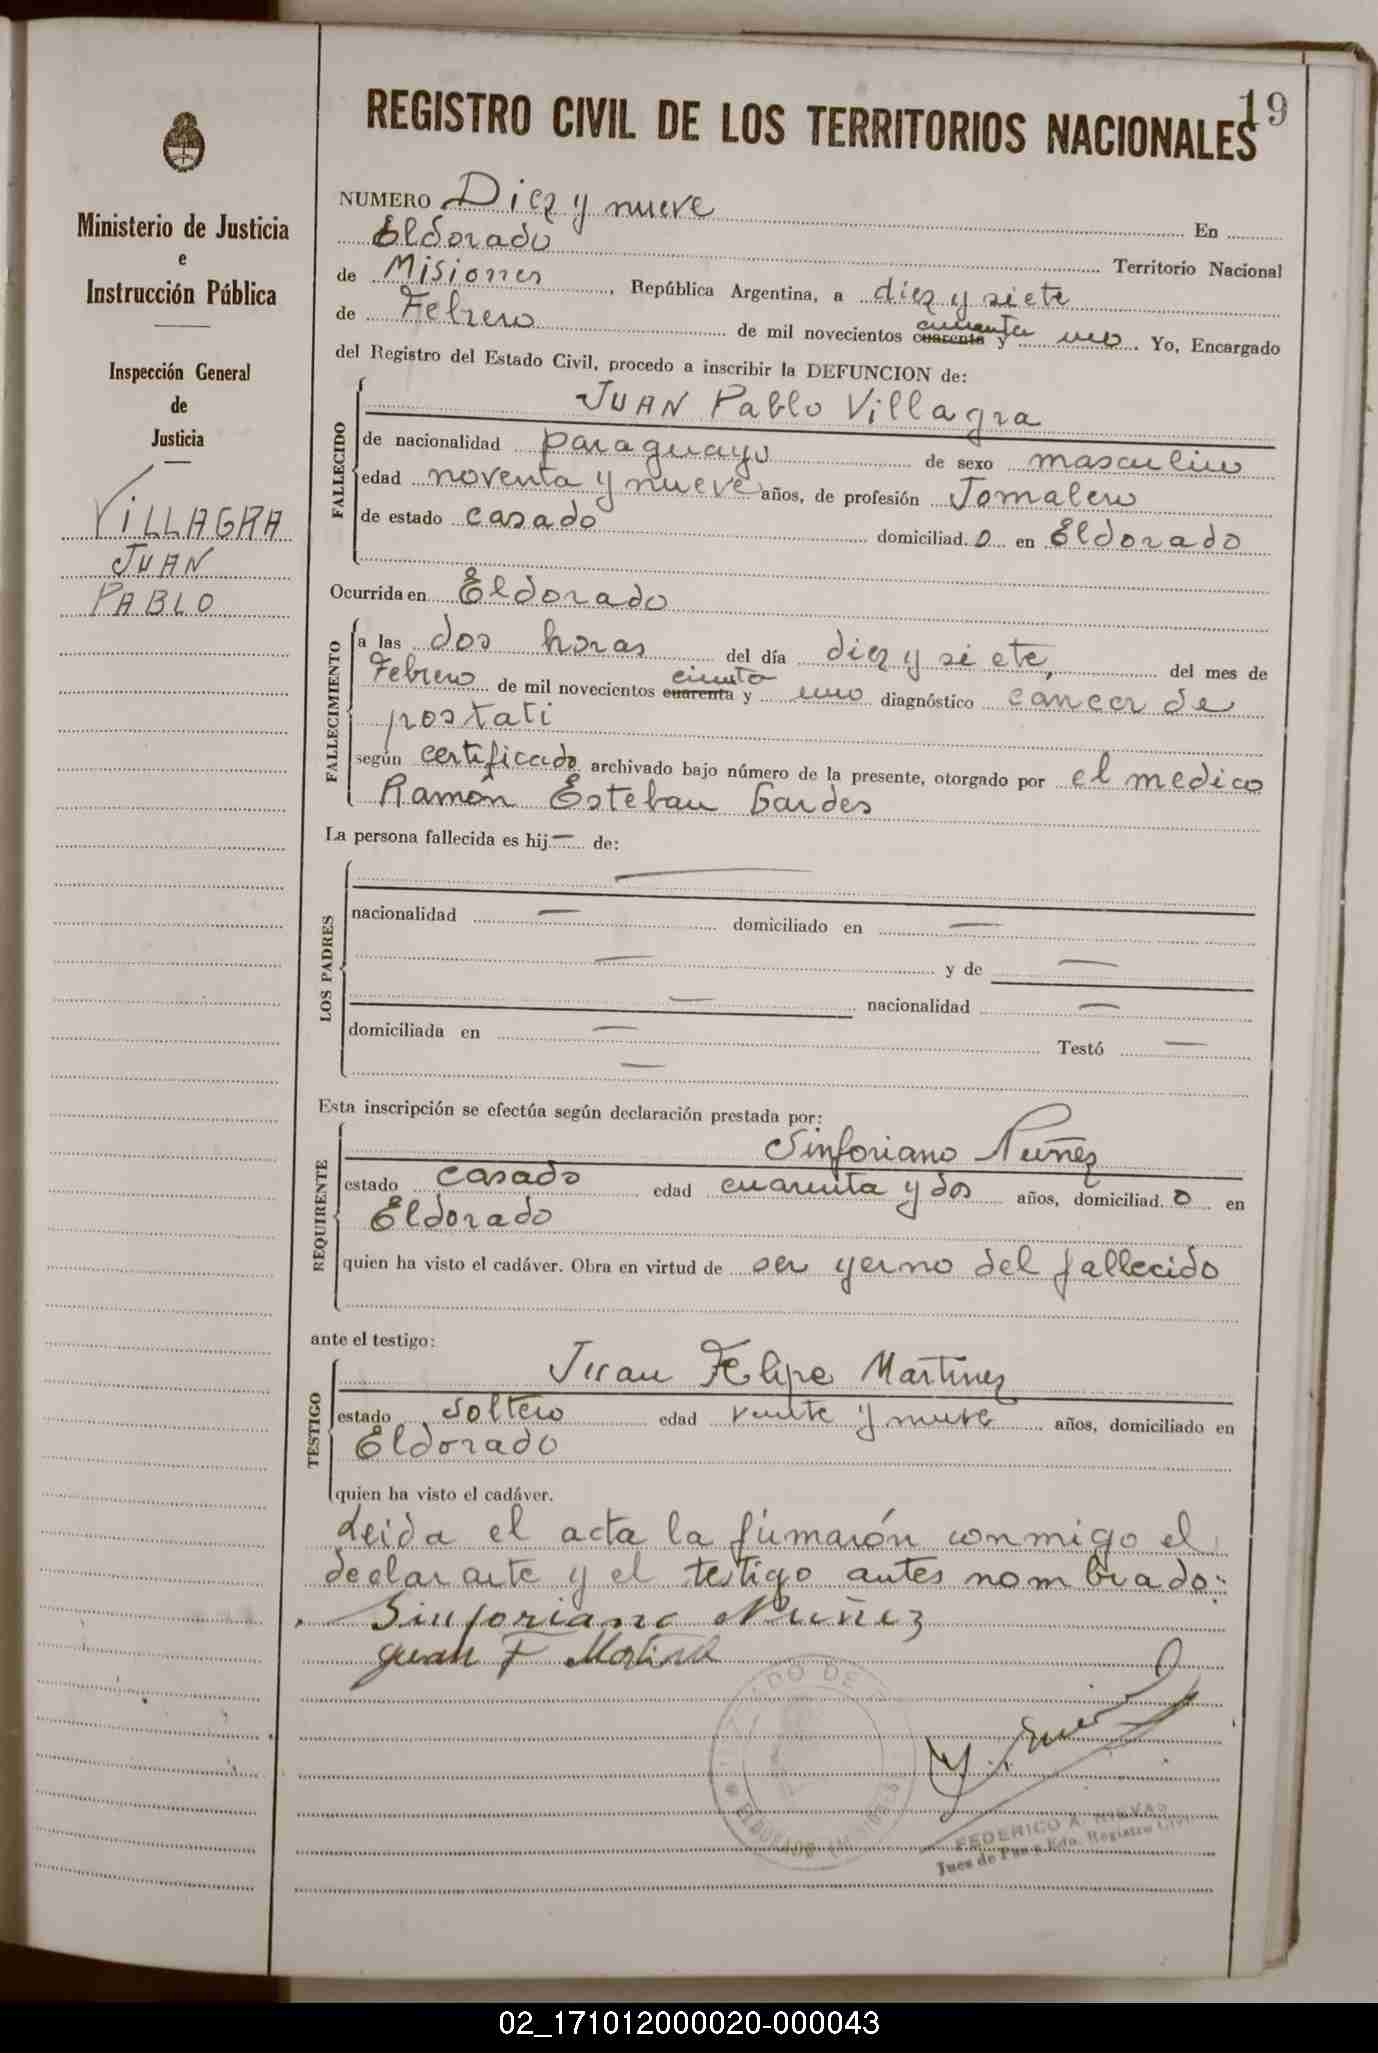 19
REGISTRO CIVIL DE LOS TERRITORIOS NACIONALES
Ministerio de Justicia
e
Instrucción Pública
Inspección General
de
Justicia
VILLAGRA
JUAN
PABLO
NUMERO Diez y nueve En
Eldorado Territorio Nacional
de Misiones, República Argentina, a diez y siete
de Febrero de mil novecientos cuarenta y uno. Yo, Encargado
del Registro del Estado Civil, procedo a inscribir la DEFUNCION de:
FALLECIDO
JUAN Pablo Villagra
de nacionalidad paraguayo de sexo masculino
edad noventa y nueve años, de profesión Jornalero
de estado casado domiciliad.o en Eldorado
Ocurrida en Eldorado
FALLECIMIENTO
a las dos horas del día diez y siete, del mes de
Febrero de mil novecientos cuarenta y uno diagnóstico cancer de
prostati
según certificado archivado bajo número de la presente, otorgado por el medico
Ramón Esteban Gardes
La persona fallecida es hij— de:
LOS PADRES
—
nacionalidad — domiciliado en —
— y de —
— nacionalidad —
domiciliada en — Testó —
—
Esta inscripción se efectúa según declaración prestada por:
REQUIRENTE
Sinforiano Nuñez
estado casado edad cuarenta y dos años, domiciliad.o en
Eldorado
quien ha visto el cadáver. Obra en virtud de ser yerno del fallecido
ante el testigo:
TESTIGO
Juan Felipe Martinez
estado soltero edad veinte y nueve años, domiciliado en
Eldorado
quien ha visto el cadáver.
Leida el acta la firmarón conmigo el
declarante y el testigo antes nombrado:
Sinforiano Nuñez
Juan F Martinez
ELDORADO (MISIONES)
FEDERICO A. NIEVAS
Juez de Paz y Edo. Registro Civil
02_171012000020-000043